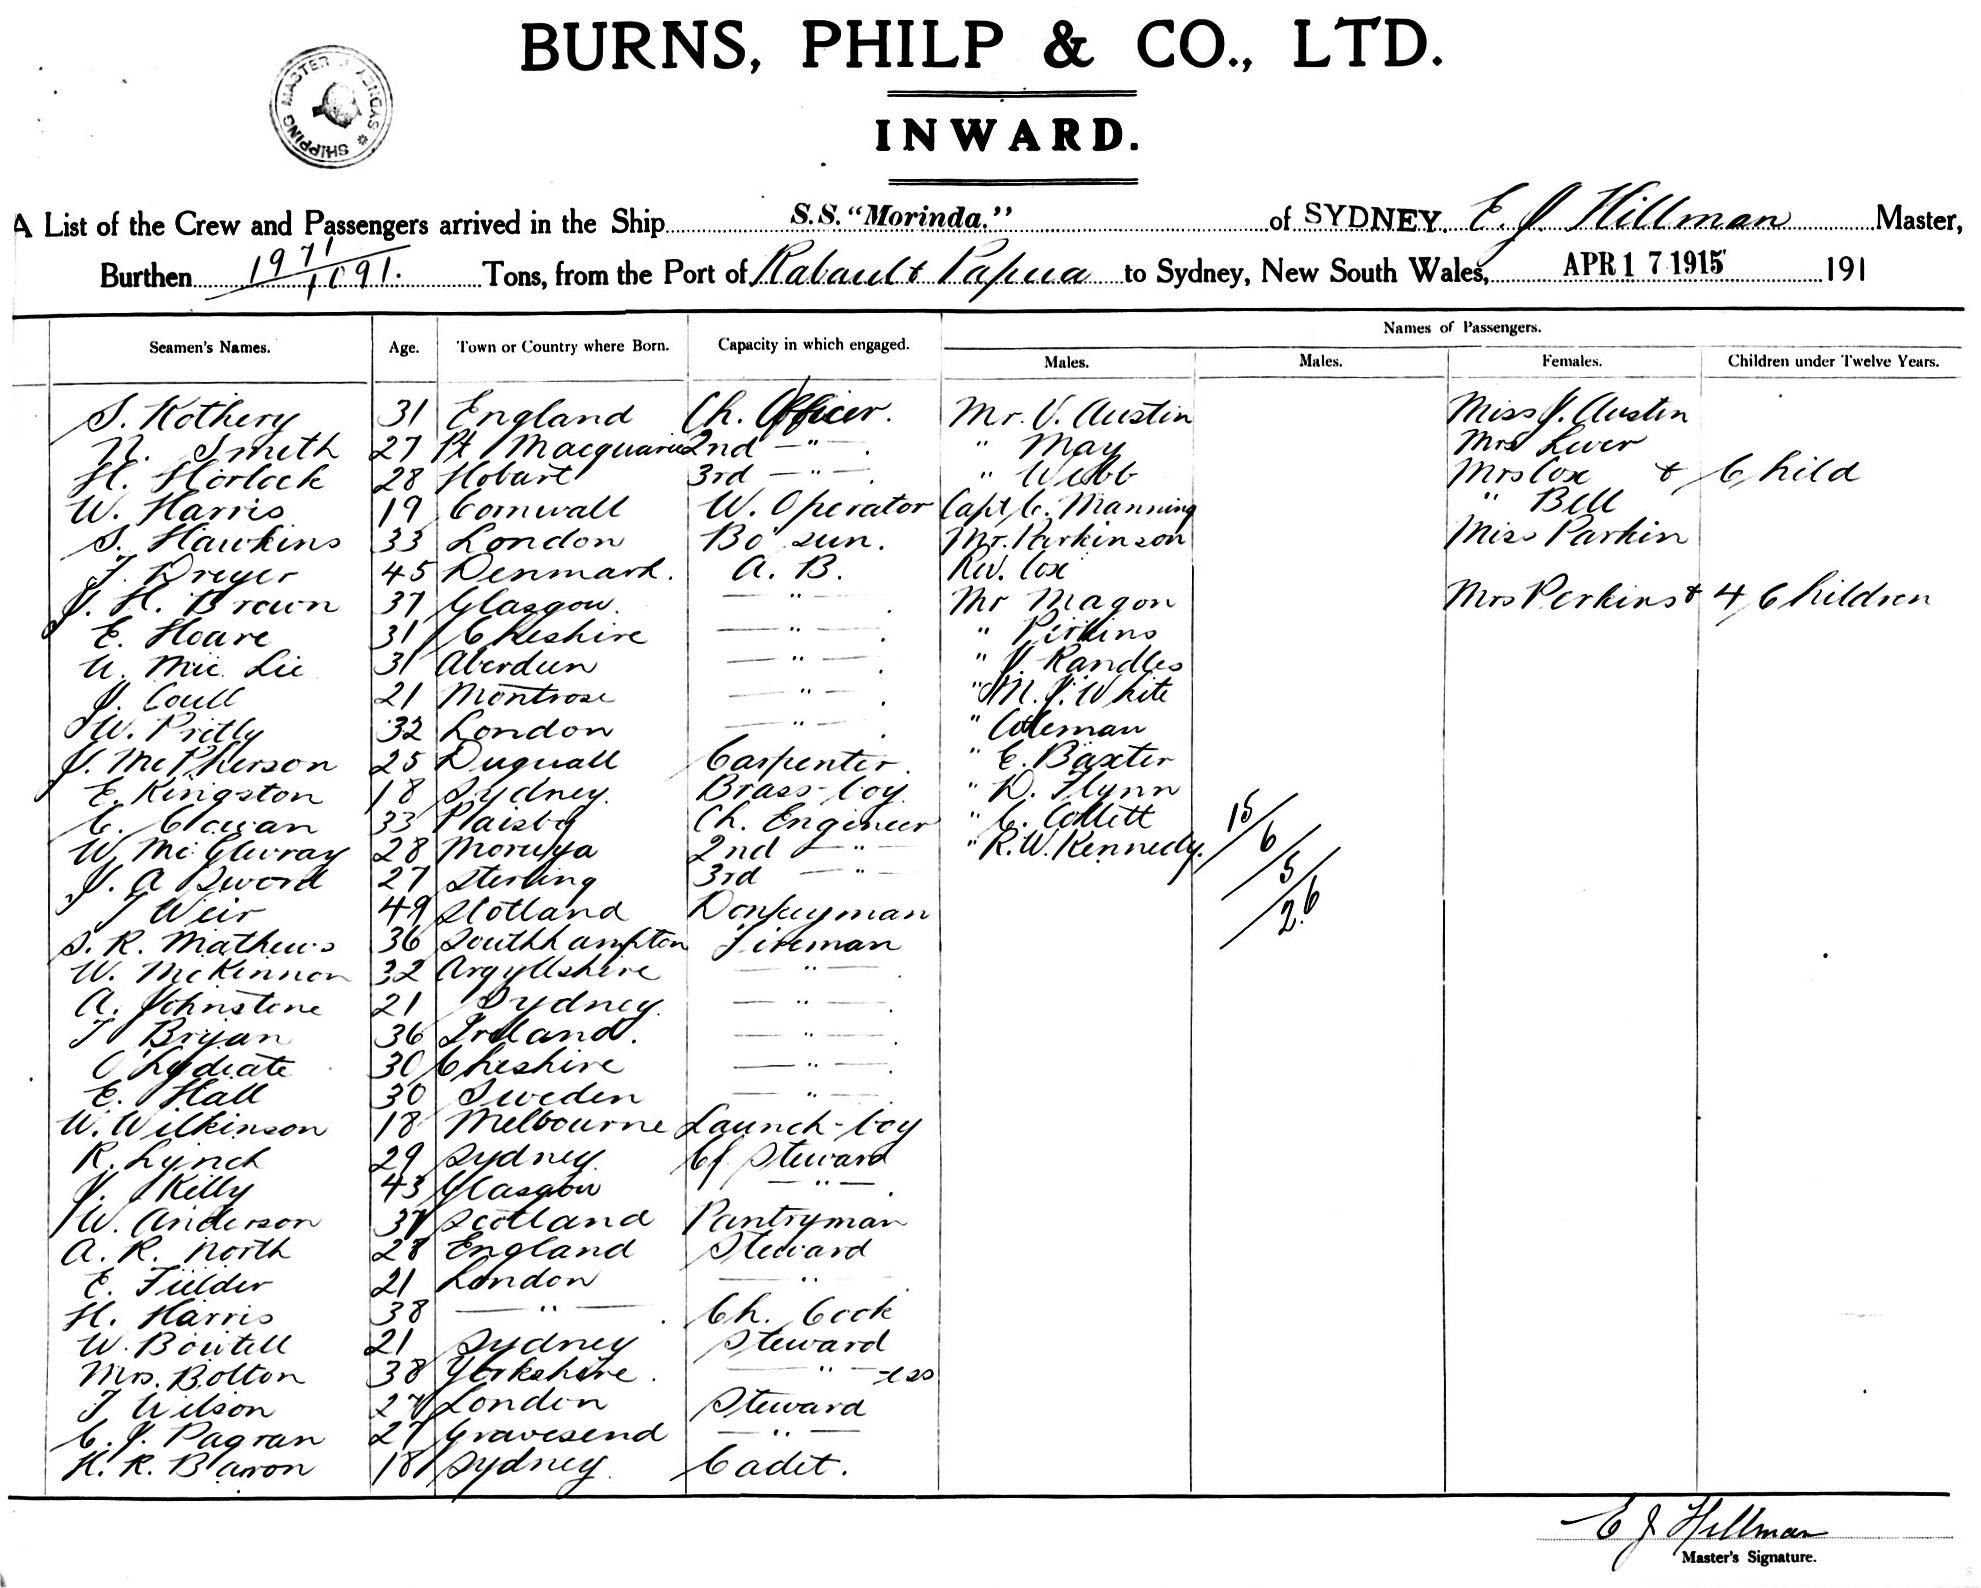 SHIPPING MASTER
BURNS, PHILP & CO., LTD.
INWARD.
A List of the Crew and Passengers arrived in the Ship S.S. "Morinda." of SYDNEY. E. J. Hillman Master,
Burthen 1971/1091. Tons, from the Port of Rabaul & Papua to Sydney, New South Wales, APR 17 1915 191
Names of Passengers.
Seamen's Names. Age. Town or Country where Born. Capacity in which engaged. Males. Males. Females. Children under Twelve Years.
S. Rothery 31 England Ch. Officer. Mr. V. Austin Miss J. Austin
N. Smith 27 Pt Macquarie 2nd — " — . " May Mrs Liver
H. Horlock 28 Hobart 3rd — " — . " Webb Mrs Cox & Child
W. Harris 19 Cornwall W. Operator Capt C. Manning " Bell
S. Hawkins 33 London Bo'sun. Mr. Parkinson Miss Parkin
J. Dreyer 45 Denmark. A. B. Rev. Cox
J. H. Brown 37 Glasgow. — " — . Mr Magon Mrs Perkins & 4 Children
E. Hoare 31 Cheshire — " — . " Perkins
31 Aberdeen — " — . " J. Randles
J. Coull 21 Montrose — " — . " M. J. White
W. Pritly 32 London — " — . " Coleman
J. McPherson 25 Carpenter. " E. Baxter
E. Kingston 18 Sydney. Brass-boy. " D. Flynn
C. Cowan 33 Ch. Engineer " C. Collett 15/
W. McGilvray 28 Moruya 2nd — " — " R. W. Kennedy. 6/
J. A Sword 27 Sterling 3rd — " — 5/
J Weir 49 Scotland Donkeyman 26
S. R. Mathews 36 Southhampton Fireman
W. McKinnon 32 Argyllshire — " — .
A. Johnstone 21 Sydney. — " — .
J Bryan 36 Ireland. — " — .
O Lydiate 30 Cheshire — " — .
E. Hall 30 Sweden — " — .
W. Wilkinson 18 Melbourne Launch-boy
R. Lynch 29 Sydney. Cf Steward
J. Killy 43 Glasgow — " — .
W. Anderson 37 Scotland Pantryman
A. R. North 28 England Steward
E. Fielder 21 London — " — .
H. Harris 38 — " — . Ch. Cook
W. Boutell 21 Sydney Steward
Mrs. Bolton 38 Yorkshire. — " — -ess
J Wilson 27 London Steward
C. J. Pagran 27 Gravesend — " —
H. R. Baron 18 Sydney. Cadet.
E J Hillman
Master's Signature.